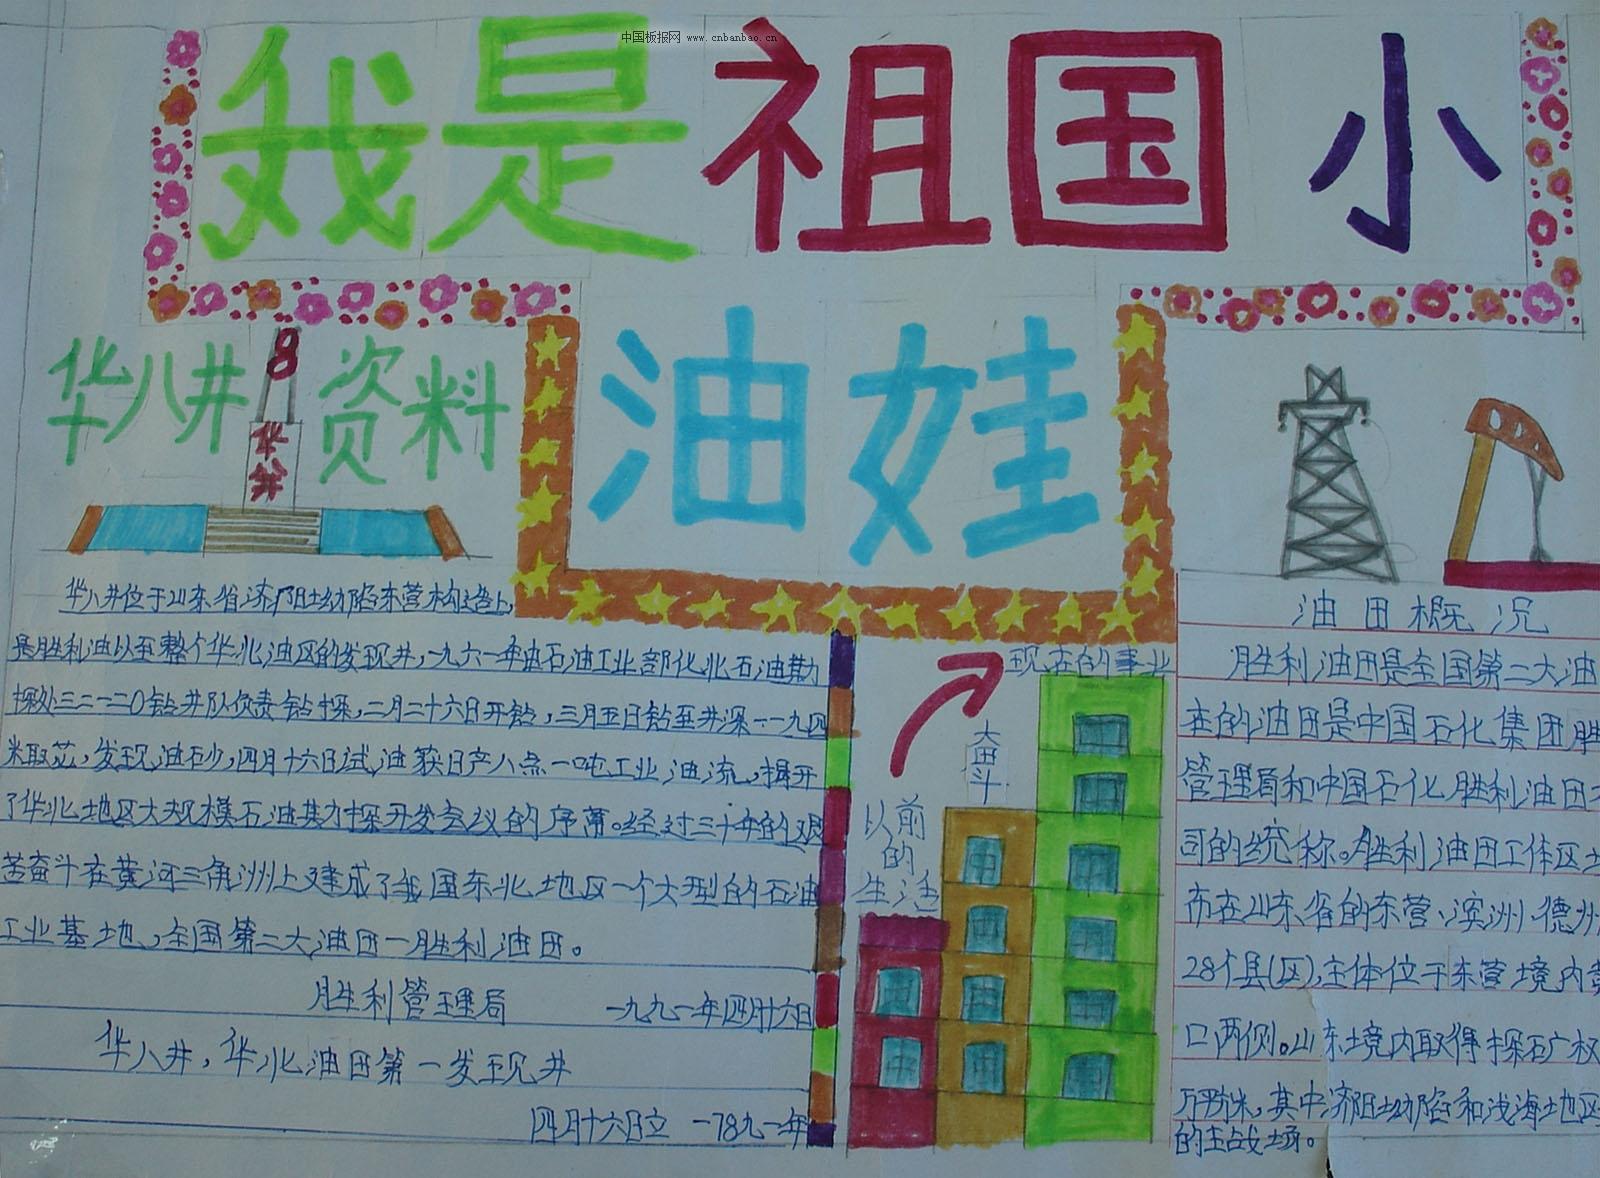 中国板报网 www.cnbanbao.cn
我是祖国小
油娃
华八井
8
华八井
资料
华八井位于山东省济阳坳陷东营构造上,
是胜利油以至整个华北油区的发现井,一九六一年由石油工业部化北石油勘
探处三二一二〇钻井队负责钻探,二月二十六日开钻,三月五日钻至井深一一九四
米取芯,发现油砂,四月十六日试油获日产八点一吨工业油流,揭开
了华北地区大规模石油勘探开发会议的序幕。经过三十年的艰
苦奋斗在黄河三角洲上建成了我国东北地区一个大型的石油
工业基地,全国第二大油田一胜利油田。
胜利管理局 一九九一年四月十六日
华八井,华北油田第一发现井
四月十六日立 一789九一年
现在的事业
奋斗
以前的生活
油田概况
胜利油田是全国第二大油
在的油田是中国石化集团胜
管理局和中国石化胜利油田
司的统称。胜利油田工作区
布在山东省的东营、滨州德州
28个县(区),主体位于东营境内
口两侧。山东境内取得探矿权
万平方米,其中济阳坳陷和浅海地区
的主战场。